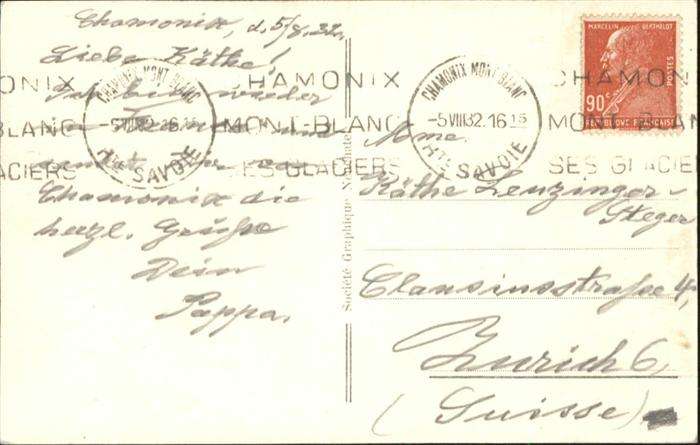 Chamonix, d. 5/8.32.
Liebe Käthe!
Ich bin wieder
Chamonix die
herzl. Grüße
Dein
Pappa.
CHAMONIX MONT-BLANC
-5 VIII 32. 16 15
HTE SAVOIE
CHAMONIX
MONT-BLANC
SES GLACIERS
CHAMONIX MONT-BLANC
-5 VIII 32. 16 15
HTE SAVOIE
CHAMONIX
MONT-BLANC
SES GLACIERS
MARCELIN BERTHELOT
POSTES
90c
REPUBLIQUE FRANÇAISE
Société Graphique Neuchâtel
Mme.
Käthe Leuzinger-
Steger
Clausiusstraße 4
Zurich 6
(Suisse)